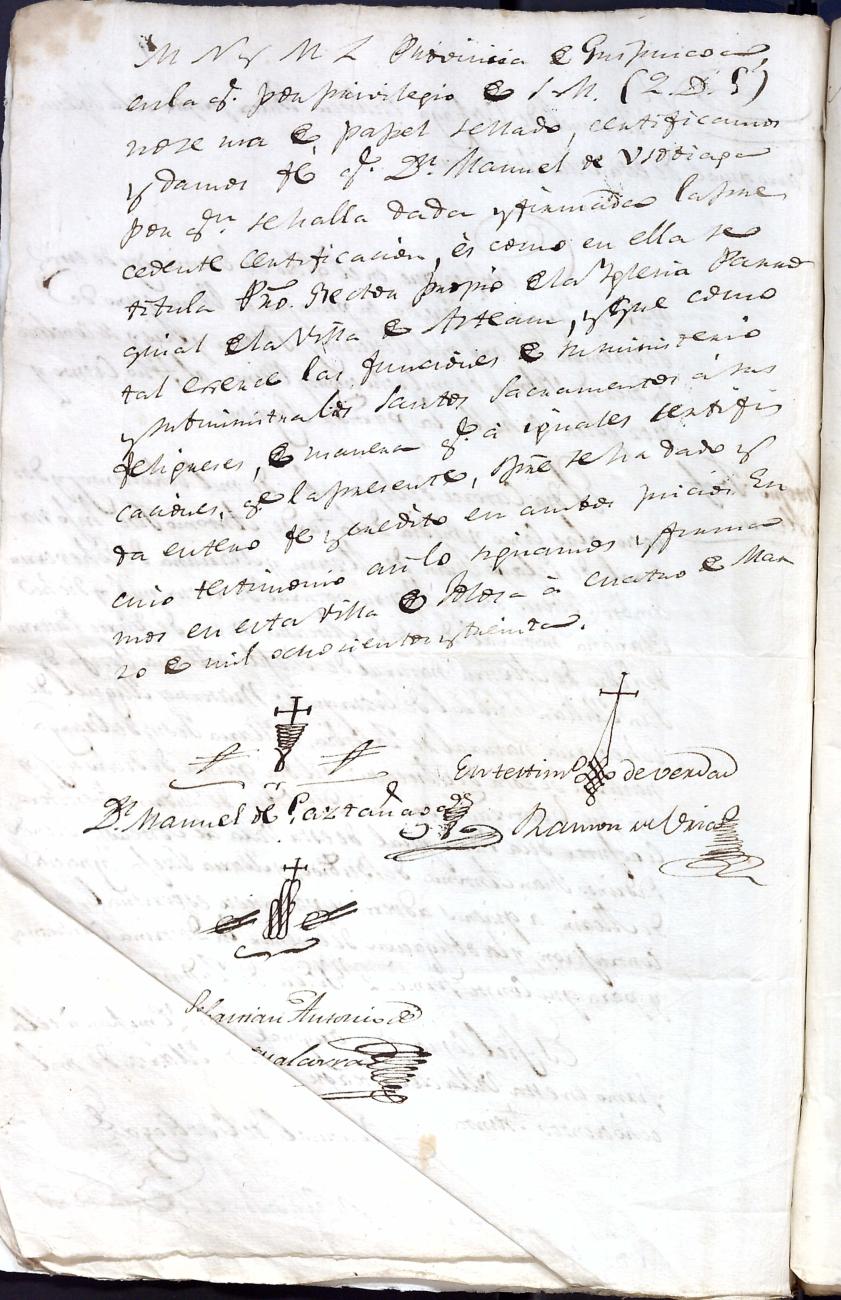 M N y M L Provincia de Guipuzcoa
en la q.e por privilegio de S. M. (Q. D. G.)
no se usa de papel sellado, certificamos
y damos fe q.e D.n Manuel de
por q.n se halla dada y firmada la pre
cedente certificacion, és como en ella se
titula Pro. Rector propio de la Yglesia Parro
quial de la Villa de Asteasu, y que como
tal exerce las funciones de su ministerio
y subministra los Santos Sacramentos á sus
feligreses, de manera q.e á iguales certifi
caciones, q.e la presente, spre se ha dado y
da entero fe y credito en ambos juicios En
cuio testimonio asi lo signamos y firma
mos en esta Villa de Tolosa à cuatro de Mar
zo de mil ochocientos y treinta.
En testim.o de verdad
D.n Manuel de Ramon de
Sebastian Antonio de